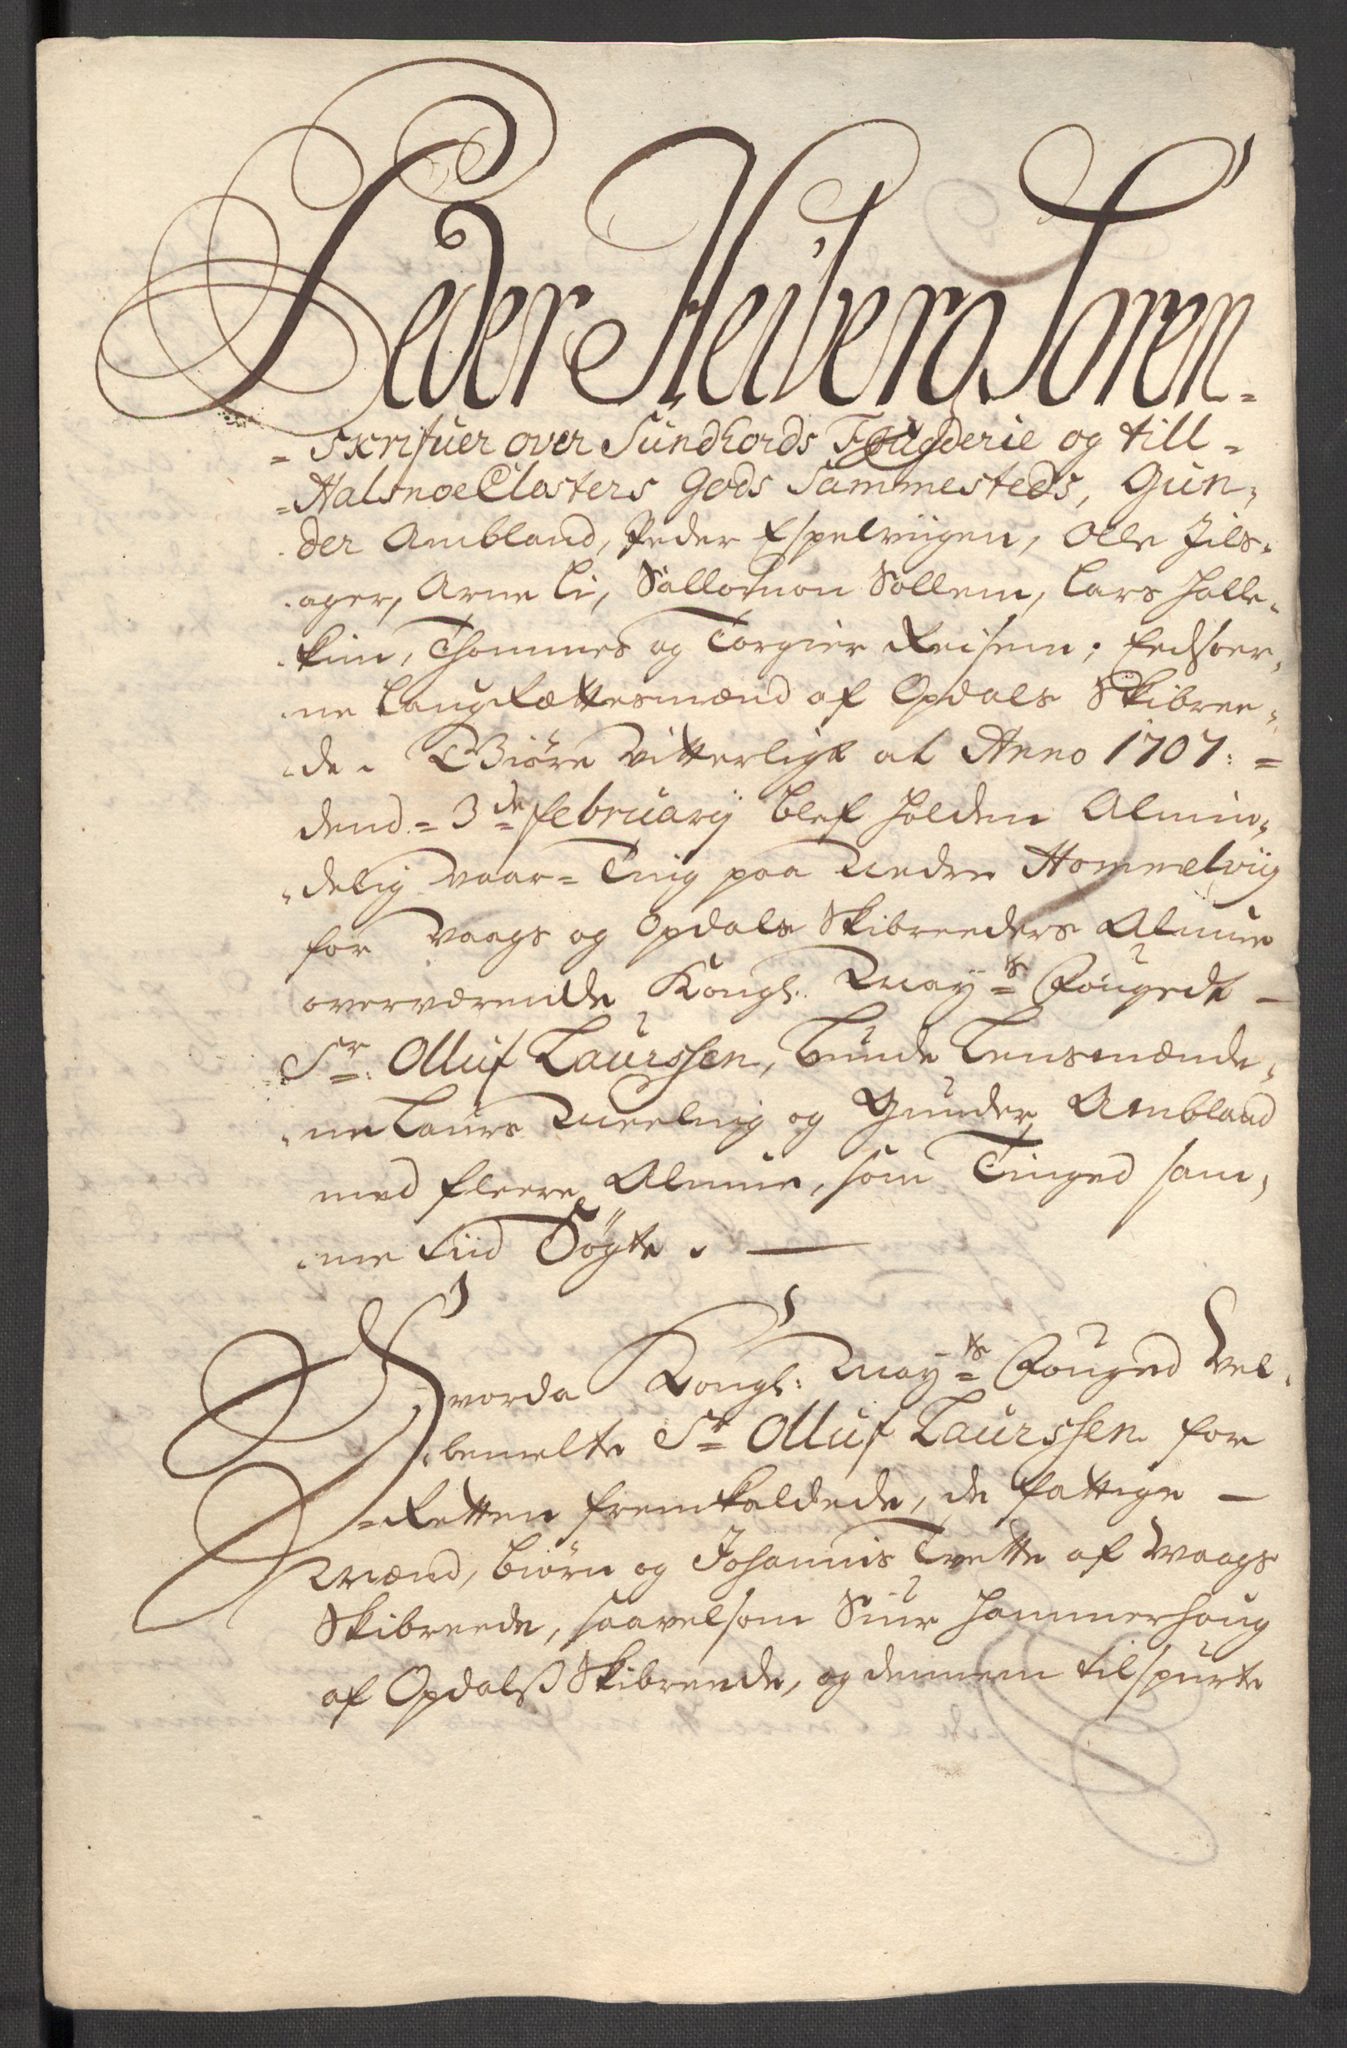 Peder Heiberg Soren-
=skrifuer over Sundhords Fougderie og till=
=Halsnoe Closters Gods Sammesteds, Gun,
der Ambland, Peder Espelviigen, Olle Jils,
ager, Arne Li, Sallomon Sollem, Lars Halle,
kim, Thommes og Torgier Reisem; Eedsoer,
ne LaugRættesmænd af Opdals Skibree,
de. Giøre Vitterligt at Anno 1707:=
dend=3de february blef holden Almin,
delig Vaar=Ting paa Nedre Hommelviig
for Vaags og Opdals Skibreeders Almue
overværende Kongl: Mayts Fougedt
Sr. Olluf Laurssen, Bunde Lensmænde,
ne Laurs Meeling og Gunder Ambland
med fleere Almue, som Tinged sam,
me tiid Søgte.
Hvorda Kongl: Mayts Fouged Vel,
bemelte Sr Olluf Laurssen for
=Retten fremkaldede, de fattige
Mænd, Biørn og Johannis Tvette af Waags
Skibreede, saavelsom Siur Hammerhoug
af Opdalss Skibreede, og dennem tilspurte